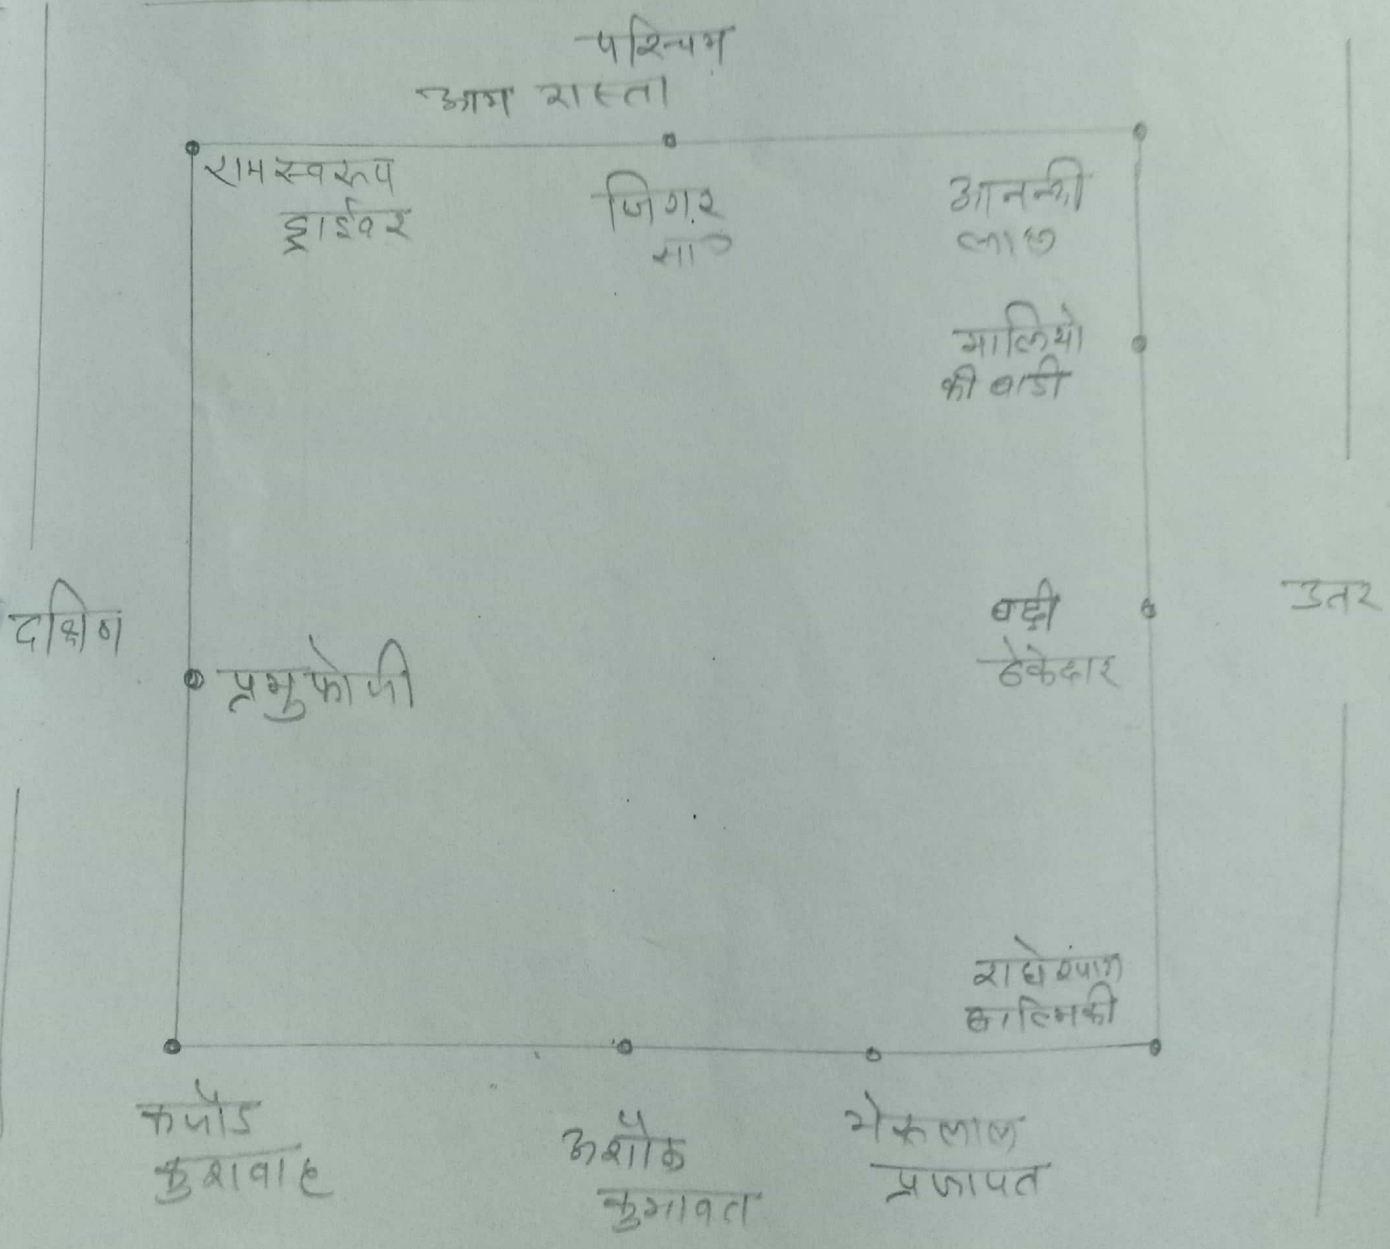 पश्चिम
आम रास्ता
रामस्वरूप
ड्राईवर
जिगर
सा०
आनन्दी
लाल
मालियो
की बाडी
दक्षिण
उतर
बद्री
ठेकेदार
प्रभुफोजी
राधेश्याम
बाल्मिकी
कजौड
कुशवाह
अशौक
कुमावत
भेरूलाल
प्रजापत